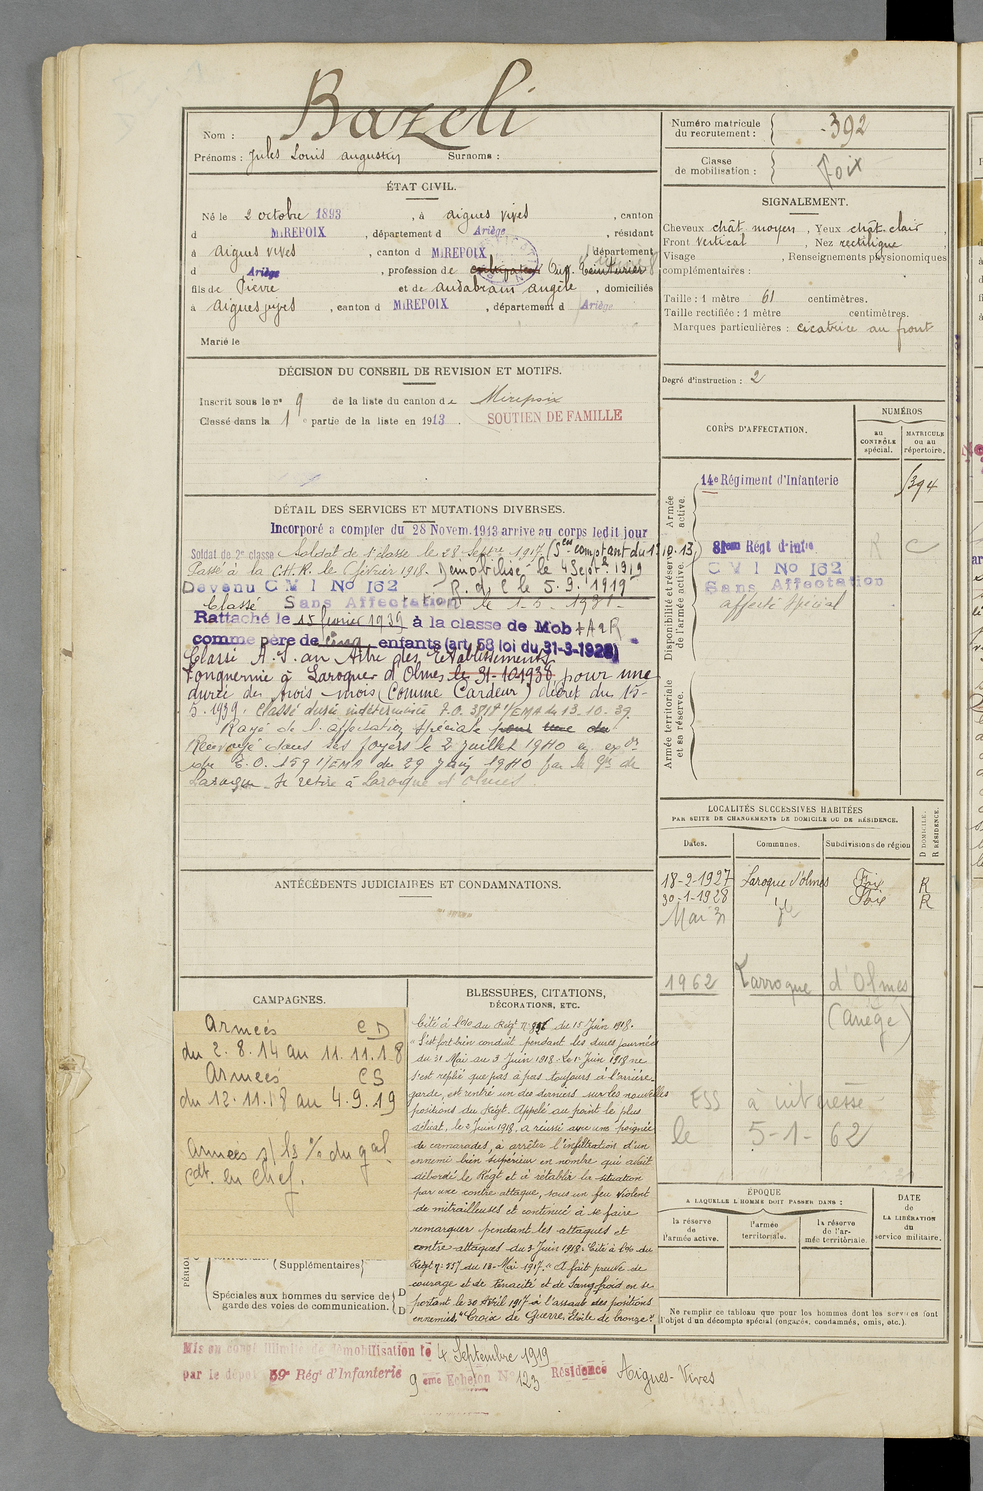 Nom : Bazeli
Prénoms : Jules Louis Augustin Surnoms :
Numéro matricule du recrutement : 392
Classe de mobilisation : Foix
ÉTAT CIVIL.
Né le 2 octobre 1893, à aigues vives, canton
d MIREPOIX, département d Ariège, résidant
à aigues vives, canton d MIREPOIX, département
d Ariège, profession de cultivateur Ouv. teinturier
fils de Pierre et de audabram angèle, domiciliés
à aigues vives, canton d MIREPOIX, département d Ariège
Marié le
SIGNALEMENT.
Cheveux chât moyen, Yeux chât. clair,
Front vertical, Nez rectiligne
Visage , Renseignements physionomiques
complémentaires :
Taille : 1 mètre 61 centimètres.
Taille rectifiée : 1 mètre centimètres.
Marques particulières : cicatrice au front
Degré d'instruction : 2
DÉCISION DU CONSEIL DE REVISION ET MOTIFS.
Inscrit sous le n° 9 de la liste du canton de Mirepoix
Classé dans la 1e partie de la liste en 1913. SOUTIEN DE FAMILLE
CORPS D'AFFECTATION.
NUMÉROS
au CONTRÔLE spécial.
MATRICULE ou au répertoire.
Armée active.
14e Régiment d'Infanterie 1394
Disponibilité et réserve de l'armée active.
81eme Régt d'infie R C
C M I No 162
Sans Affectation
affecté spécial
Armée territoriale et sa réserve.
DÉTAIL DES SERVICES ET MUTATIONS DIVERSES.
Incorporé a compter du 28 Novem. 1913 arrive au corps ledit jour
Soldat de 2e classe Soldat de 1e classe le 28 Septbre 1917. (Ses comptant du 1.10.13)
Passé à la C.H.R. le février 1918. Démobilisé le 4 Septbre 1919
Devenu C M I No 162 R.d.C le 5.9.1919
Classé Sans Affectation le 1-5-1931-
Rattaché le 15 février 1939 à la classe de Mob + A2R
comme père de cinq enfants (art. 58 loi du 31-3-1928)
Classé A.S. au titre des Etablissements
Fonquernie à Laroque d'Olmes le 31-10-1938 pour une
durée de trois mois (Comme Cardeur) décret du 15-
5-1939. Classé durée indéterminée T.O. 3818 1/EMA du 13-10-39
Rayé de l'affectation spéciale pour une du
Renvoyé dans ses foyers le 2 juillet 1940 en exon
du T.O. 159 1/EMA du 29 juin 1940 par la Gie de
Laroque. Se retire à Laroque d'Olmes.
LOCALITÉS SUCCESSIVES HABITÉES
PAR SUITE DE CHANGEMENTS DE DOMICILE OU DE RÉSIDENCE.
Dates. Communes. Subdivisions de région D DOMICILE. R RÉSIDENCE.
18-2-1927 Laroque d'olmes Foix R
30-1-1928 id Foix R
Mai 31 id
1962 Larroque d'Olmes
(Ariège)
ESS à intéressé
le 5-1-62
ANTÉCÉDENTS JUDICIAIRES ET CONDAMNATIONS.
CAMPAGNES.
Armées CD
du 2.8.14 au 11.11.18
Armées CS
du 12.11.18 au 4.9.19
Armées s/ les % du gal
Cdt. en chef.
PÉRIO
(Supplémentaires)
Spéciales aux hommes du service de garde des voies de communication. D D
BLESSURES, CITATIONS,
DÉCORATIONS, ETC.
Cité à l'o/o du Régt n° 896 du 15 Juin 1918.
"S'est fort bien conduit pendant les dures journées
du 31 Mai au 3 Juin 1918. Le 1er Juin 1918 ne
s'est replié que pas à pas toujours à l'arrière-
garde, est rentré un des derniers sur les nouvelles
positions du Régt. Appelé au point le plus
délicat, le 2 Juin 1918, a réussi avec une poignée
de camarades, à arrêter l'infiltration d'un
ennemi bien supérieur en nombre qui avait
débordé le Régt et à rétablir la situation
par une contre attaque, sous un feu violent
de mitrailleuses et continué à se faire
remarquer pendant les attaques et
contre-attaques du 3 Juin 1918. Cité à l'o/o du
Régt n° 557 du 18-Mai 1917. "A fait preuve de
courage et de ténacité et de sang froid en se
portant le 30 Avril 1917 à l'assaut des positions
ennemies." Croix de Guerre. Etoile de bronze".
ÉPOQUE
A LAQUELLE L'HOMME DOIT PASSER DANS :
la réserve de l'armée active. l'armée territoriale. la réserve de l'armée territoriale.
DATE DE LA LIBÉRATION du service militaire.
Ne remplir ce tableau que pour les hommes dont les services font
l'objet d'un décompte spécial (engagés, condamnés, omis, etc.).
Mis au congé illimité de démobilisation le 4 Septembre 1919
par le dépôt 59e Régt d'Infanterie 9 eme Echelon No 123 Résidence Aigues-Vives